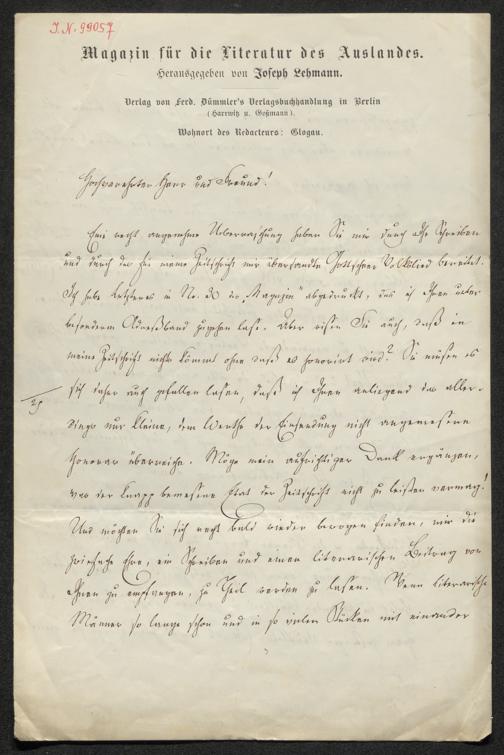 J. N. 99057
Magazin für die Literatur des Auslandes.
Herausgegeben von Joseph Lehmann.
Verlag von Ferd. Dümmler's Verlagsbuchhandlung in Berlin
(Harrwitz u. Goßmann).
Wohnort des Redacteurs: Glogau.
Hochverehrter Herr und Freund!
Eine recht angenehme Ueberraschung haben Sie mir durch Ihr Schreiben
und durch das für meine Zeitschrift mir übersandte Gottscheer Volkslied bereitet.
Ich habe Letzteres in No. des „Magazin" abgedruckt, das ich Ihnen unter
besonderem Kreuzband zugehen lasse. Aber wissen Sie auch, daß in
meine Zeitschrift nichts kommt ohne daß es honorirt wird? Sie müssen es
sich daher auch gefallen lassen, daß ich Ihnen anliegend das aller-
dings nur kleine, dem Werthe der Einsendung nicht angemessene
Honorar überreiche. Möge mein aufrichtiger Dank ergänzen,
was der knapp bemessene Etat der Zeitschrift nicht zu leisten vermag!
Und möchten Sie sich recht bald wieder bewogen finden, mir die
zwiefache Ehre, ein Schreiben und einen literarischen Beitrag von
Ihnen zu empfangen, zu Theil werden zu lassen. Wenn literarische
Männer so lange schon und in so vielen Stücken mit einander